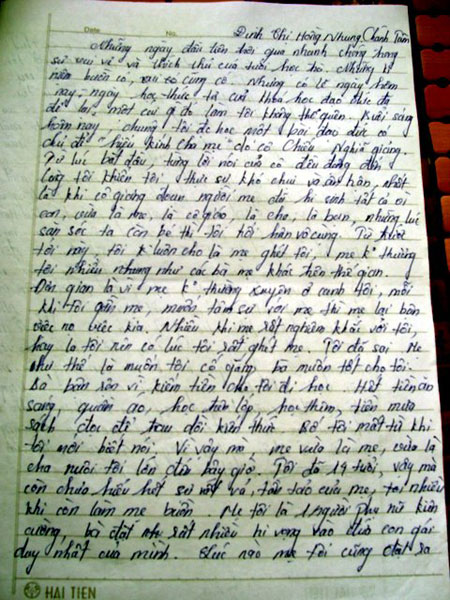 Date No. Đinh Thị Hồng Nhung, Chánh Tâm
Những ngày đầu tiên trôi qua nhanh chóng trong
sự vui vẻ và thích thú của tuổi học trò. Những kỉ
niệm buồn có, vui sướng cũng có. Nhưng có lẽ ngày hôm
nay, ngày học thực tế của khóa học đạo đức đã
để lại một cái gì đó làm tôi không thể quên. Buổi sáng
hôm nay, chúng tôi đc học một bài đạo đức có
chủ đề "Hiếu kính cha mẹ" do cô Chiều Nghi giảng.
Từ lúc bắt đầu, từng lời nói của cô đều đúng đến
lòng tôi khiến tôi thực sự khó chịu và ân hận, nhất
là khi cô giảng đoạn người mẹ đã hi sinh tất cả vì
con, vừa là mẹ, là cô giáo, là cha, là bạn, những lúc
săn sóc ta còn bé thì tôi hối hận vô cùng. Từ trước
tới nay, tôi luôn cho là mẹ ghét tôi, mẹ k° thương
tôi nhiều nhưng như các bà mẹ khác trên thế gian.
Đơn giản là vì mẹ k° thường xuyên ở cạnh tôi, mỗi
khi tôi gần mẹ, muốn tâm sự với mẹ thì mẹ lại bận
việc nọ việc kia. Nhiều khi mẹ rất nghiêm khắc với tôi,
hay la tôi nên có lúc tôi rất ghét mẹ. Tôi đã sai. Mẹ
như thế là muốn tôi cố gắng, bà muốn tốt cho tôi.
Bà bận rộn vì kiếm tiền cho tôi đi học. Hết tiền ăn
sáng, quần áo, học trên lớp, học thêm, tiền mua
sách đọc để trau dồi kiến thức. Bố tôi mất từ khi
tôi mới biết nói. Vì vậy mà, mẹ vừa là mẹ, vừa là
cha nuôi tôi lớn đến bây giờ. Tôi đã 14 tuổi, vậy mà
còn chưa hiểu hết sự vất vả, tần tảo của mẹ, tôi nhiều
khi còn làm mẹ buồn. Mẹ tôi là 1 người phụ nữ kiên
cường, bà đặt rất nhiều hi vọng vào đứa con gái
duy nhất của mình. Lúc nào mẹ tôi cũng đặt ra
HẢI TIẾN